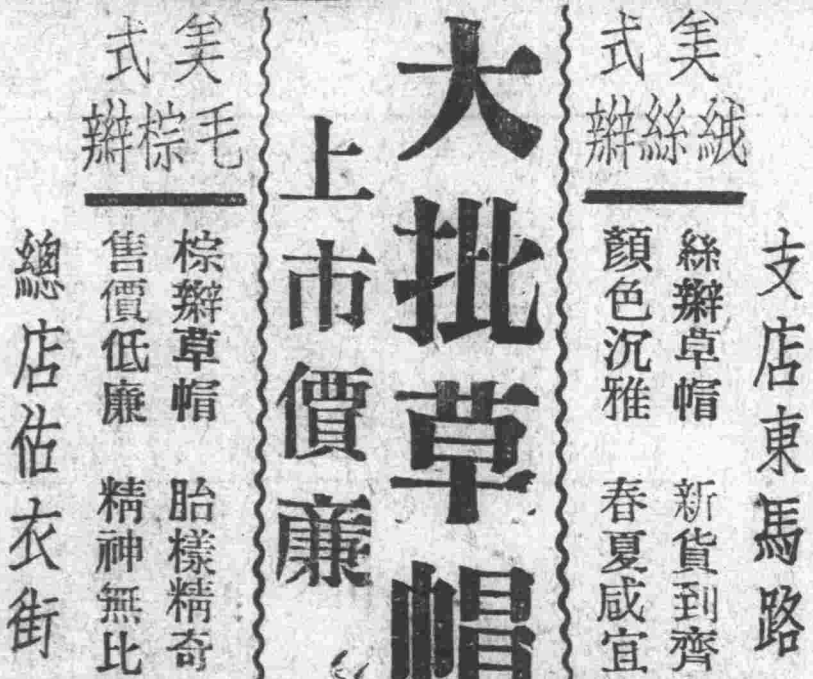 支店東馬路
美式
絨絲辮
絲辮草帽 新貨到齊
顏色沉雅 春夏咸宜
大批草帽
上市價廉
美式
毛棕辮
棕辮草帽 胎樣精奇
售價低廉 精神無比
總店估衣街